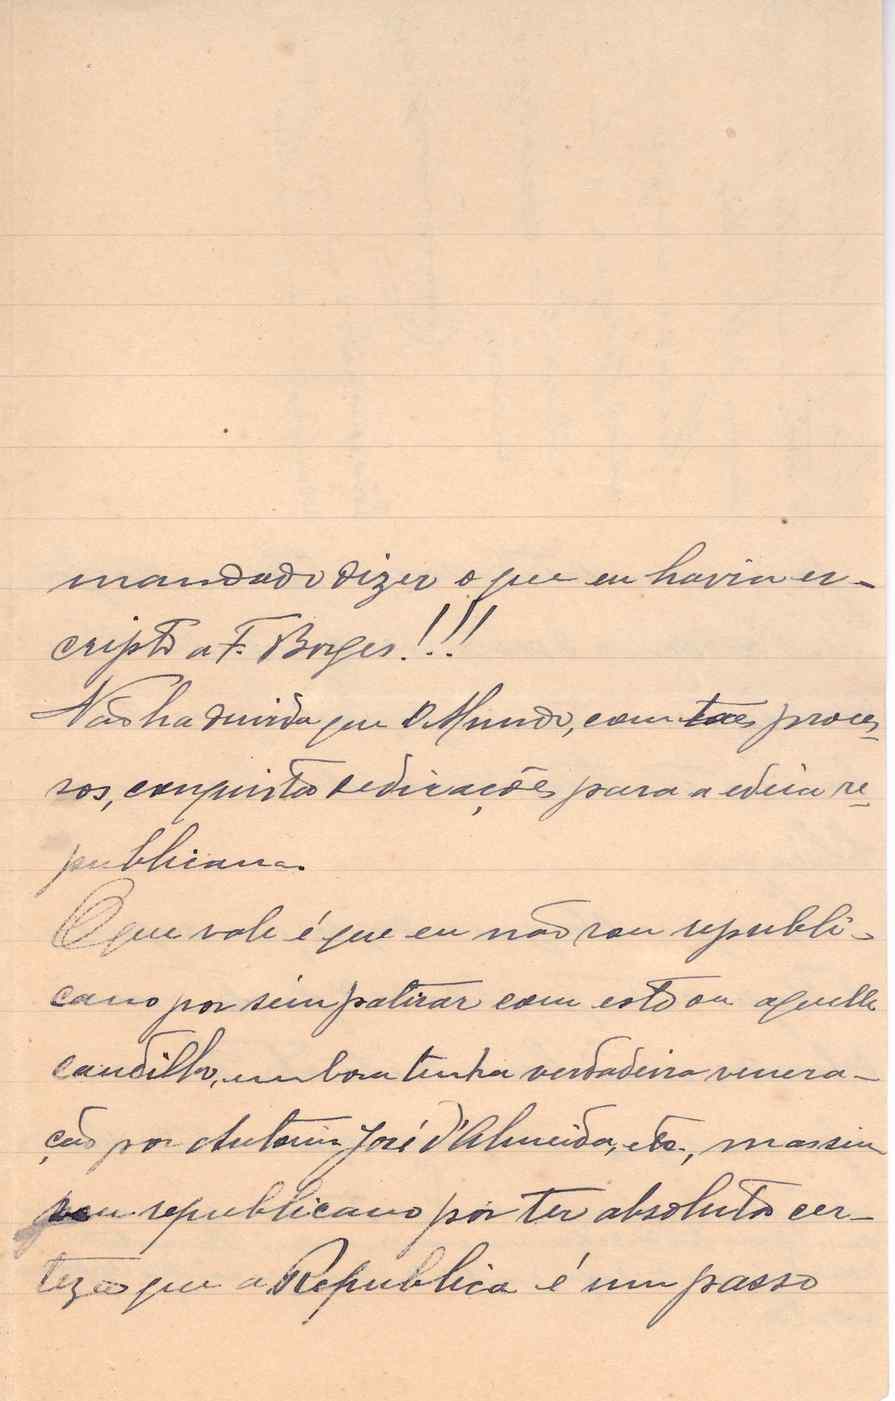 mandado dizer o que eu havia es-
cripto a F. Borges!!!
Não ha duvida que O Mundo, com taes proces-
sos, conquista dedicações para a edeia re-
publicana.
O que vale é que eu não sou republi-
cano por simpatizar com este ou aquelle
caudilho, embora tenha verdadeira venera-
ção por Antonio José d'Almeida, etc., mas sim
sou republicano por ter absoluta cer-
teza que a Republica é um passo